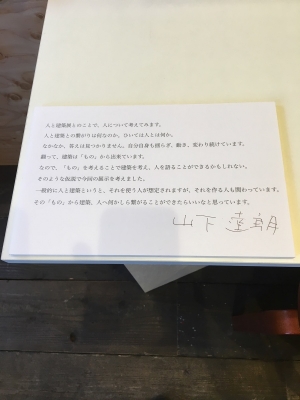 人と建築展とのことで、人について考えてみます。
人と建築との繋がりは何なのか、ひいては人とは何か。
なかなか、答えは見つかりません。自分自身も揺らぎ、動き、変わり続けています。
翻って、建築は「もの」から出来ています。
なので、「もの」を考えることで建築を考え、人を語ることができるかもしれない。
そのような仮説で今回の展示を考えました。
一般的に人と建築というと、それを使う人が想定されますが、それを作る人も関わっています。
その「もの」から建築、人へ何かしら繋がることができたらいいなと思っています。
山下 達朗